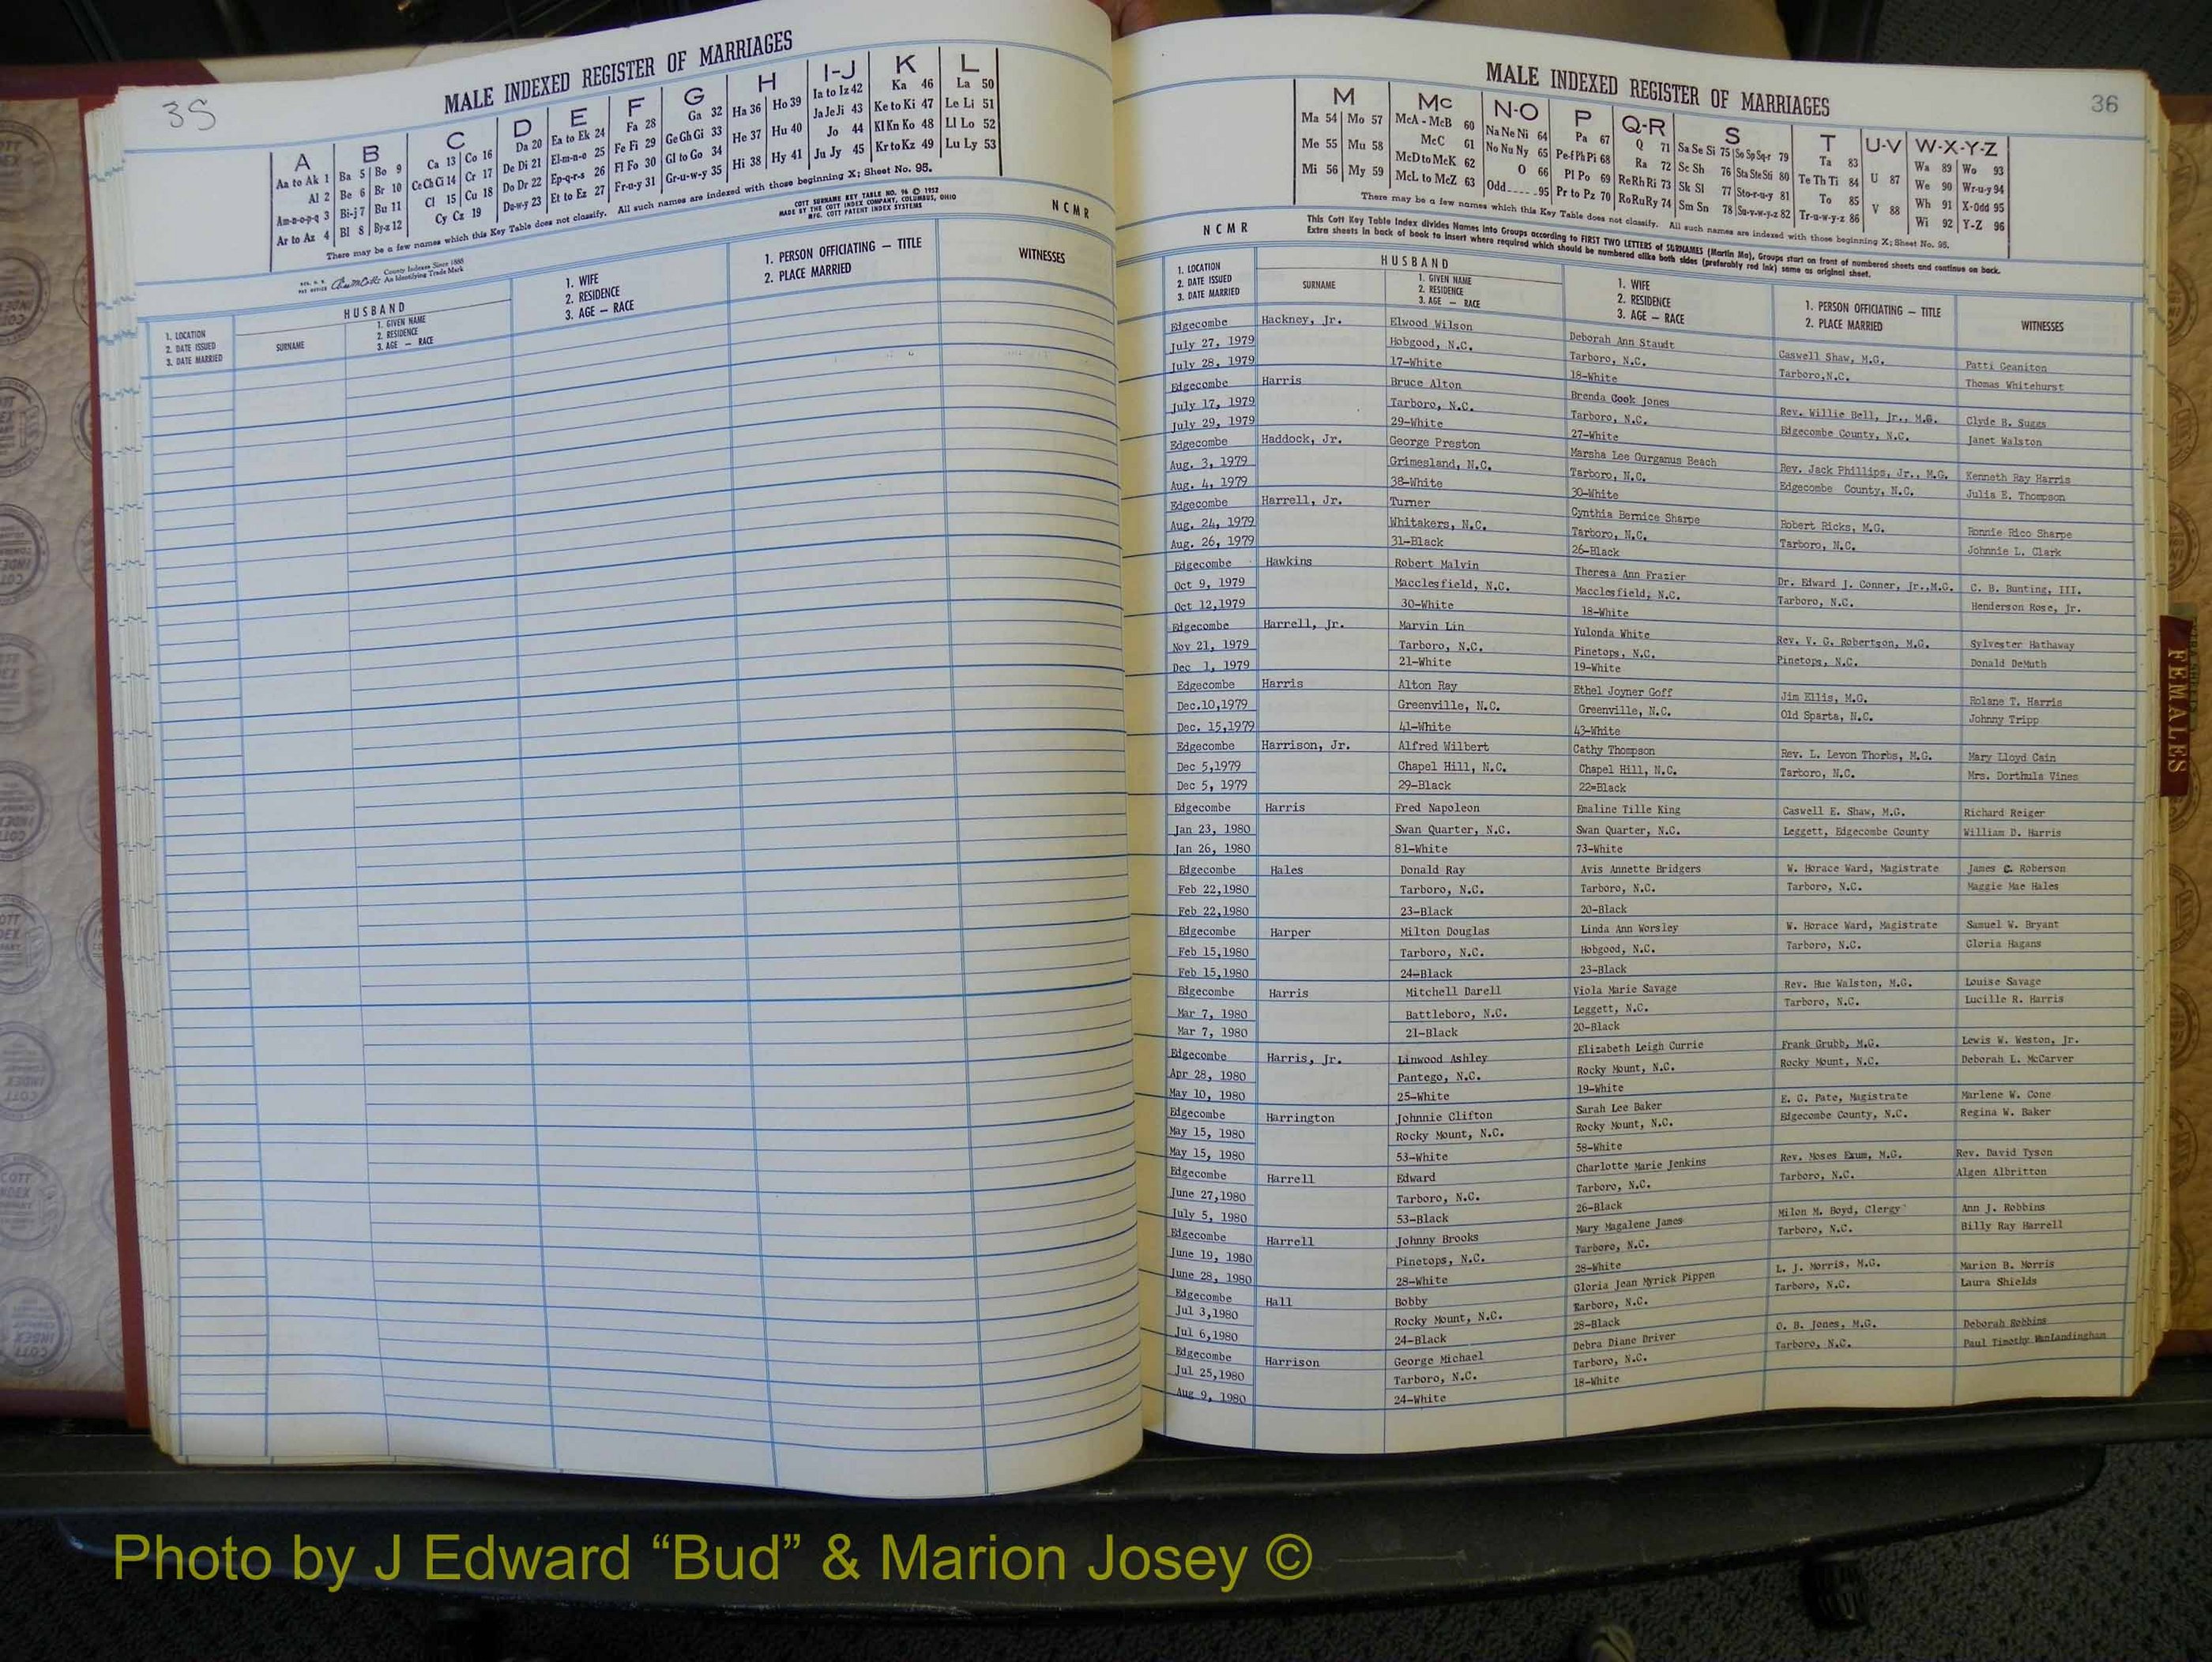 35
MALE INDEXED REGISTER OF MARRIAGES
A B C D E F G H I-J K L
Aa to Ak 1 Ba 5 Bo 9 Ca 13 Co 16 Da 20 Ea to Ek 24 Fa 28 Ga 32 Ha 36 Ho 39 Ia to Iz 42 Ka 46 La 50
Al 2 Be 6 Br 10 Ce Ch Ci 14 Cr 17 De Di 21 El-m-n-o 25 Fe Fi 29 Ge Gh Gi 33 He 37 Hu 40 Ja Je Ji 43 Ke to Ki 47 Le Li 51
Am-n-o-p-q 3 Bi-j 7 Bu 11 Cl 15 Cu 18 Do Dr 22 Ep-q-r-s 26 Fl Fo 30 Gl to Go 34 Hi 38 Hy 41 Jo 44 Kl Kn Ko 48 Ll Lo 52
Ar to Az 4 Bl 8 By-z 12 Cy Cz 19 Du-w-y 23 Et to Ez 27 Fr-u-y 31 Gr-u-w-y 35 Ju Jy 45 Kr to Kz 49 Lu Ly 53
There may be a few names which this Key Table does not classify. All such names are indexed with those beginning X; Sheet No. 95.
COTT SURNAME KEY TABLE NO. 96 © 1952
MADE BY THE COTT INDEX COMPANY, COLUMBUS, OHIO
MFG. COTT PATENT INDEX SYSTEMS
NCMR
County Indexes Since 1888
An Identifying Trade Mark
1. LOCATION
2. DATE ISSUED
3. DATE MARRIED
HUSBAND
SURNAME
1. GIVEN NAME
2. RESIDENCE
3. AGE — RACE
1. WIFE
2. RESIDENCE
3. AGE — RACE
1. PERSON OFFICIATING — TITLE
2. PLACE MARRIED
WITNESSES
36
MALE INDEXED REGISTER OF MARRIAGES
M Mc N-O P Q-R S T U-V W-X-Y-Z
Ma 54 Mo 57 McA - McB 60 Na Ne Ni 64 Pa 67 Q 71 Sa Se Si 75 So Sp Sq-r 79 Ta 83 U 87 Wa 89 Wo 93
Me 55 Mu 58 McC 61 No Nu Ny 65 Pe-f Ph Pi 68 Ra 72 Sc Sh 76 Sta Ste Sti 80 Te Th Ti 84 V 88 We 90 Wr-u-y 94
Mi 56 My 59 McD to McK 62 O 66 Pl Po 69 Re Rh Ri 73 Sk Sl 77 Sto-r-u-y 81 To 85 Wh 91 X-Odd 95
McL to McZ 63 Odd 95 Pr to Pz 70 Ro Ru Ry 74 Sm Sn 78 Su-v-w-y-z 82 Tr-u-w-y-z 86 Wi 92 Y-Z 96
There may be a few names which this Key Table does not classify. All such names are indexed with those beginning X; Sheet No. 95.
NCMR
This Cott Key Table Index divides Names into Groups according to FIRST TWO LETTERS of SURNAMES (Martin Ma), Groups start on front of numbered sheets and continue on back.
Extra sheets in back of book to insert where required which should be numbered alike both sides (preferably red ink) same as original sheet.
1. LOCATION
2. DATE ISSUED
3. DATE MARRIED
HUSBAND
SURNAME
1. GIVEN NAME
2. RESIDENCE
3. AGE — RACE
1. WIFE
2. RESIDENCE
3. AGE — RACE
1. PERSON OFFICIATING — TITLE
2. PLACE MARRIED
WITNESSES
Edgecombe Hackney, Jr. Elwood Wilson Deborah Ann Staudt Caswell Shaw, M.G. Patti Geaniton
July 27, 1979 Hobgood, N.C. Tarboro, N.C. Tarboro,N.C. Thomas Whitehurst
July 28, 1979 17-White 18-White
Edgecombe Harris Bruce Alton Brenda Cook Jones Rev. Willie Bell, Jr., M.G. Clyde B. Suggs
July 17, 1979 Tarboro, N.C. Tarboro, N.C. Edgecombe County, N.C. Janet Walston
July 29, 1979 29-White 27-White
Edgecombe Haddock, Jr. George Preston Marsha Lee Gurganus Beach Rev. Jack Phillips, Jr., M.G. Kenneth Ray Harris
Aug. 3, 1979 Grimesland, N.C. Tarboro, N.C. Edgecombe County, N.C. Julia E. Thompson
Aug. 4, 1979 38-White 30-White
Edgecombe Harrell, Jr. Turner Cynthia Bernice Sharpe Robert Ricks, M.G. Ronnie Rico Sharpe
Aug. 24, 1979 Whitakers, N.C. Tarboro, N.C. Tarboro, N.C. Johnnie L. Clark
Aug. 26, 1979 31-Black 26-Black
Edgecombe Hawkins Robert Malvin Theresa Ann Frazier Dr. Edward J. Conner, Jr.,M.G. C. B. Bunting, III.
Oct 9, 1979 Macclesfield, N.C. Macclesfield, N.C. Tarboro, N.C. Henderson Rose, Jr.
Oct 12,1979 30-White 18-White
Edgecombe Harrell, Jr. Marvin Lin Yulonda White Rev. V. G. Robertson, M.G. Sylvester Hathaway
Nov 21, 1979 Tarboro, N.C. Pinetops, N.C. Pinetops, N.C. Donald DeMuth
Dec 1, 1979 21-White 19-White
Edgecombe Harris Alton Ray Ethel Joyner Goff Jim Ellis, M.G. Rolane T. Harris
Dec.10,1979 Greenville, N.C. Greenville, N.C. Old Sparta, N.C. Johnny Tripp
Dec. 15,1979 41-White 43-White
Edgecombe Harrison, Jr. Alfred Wilbert Cathy Thompson Rev. L. Levon Thorbs, M.G. Mary Lloyd Cain
Dec 5,1979 Chapel Hill, N.C. Chapel Hill, N.C. Tarboro, N.C. Mrs. Dorthula Vines
Dec 5, 1979 29-Black 22=Black
Edgecombe Harris Fred Napoleon Emaline Tille King Caswell E. Shaw, M.G. Richard Reiger
Jan 23, 1980 Swan Quarter, N.C. Swan Quarter, N.C. Leggett, Edgecombe County William D. Harris
Jan 26, 1980 81-White 73-White
Edgecombe Hales Donald Ray Avis Annette Bridgers W. Horace Ward, Magistrate James C. Roberson
Feb 22,1980 Tarboro, N.C. Tarboro, N.C. Tarboro, N.C. Maggie Mae Hales
Feb 22,1980 23-Black 20-Black
Edgecombe Harper Milton Douglas Linda Ann Worsley W. Horace Ward, Magistrate Samuel W. Bryant
Feb 15,1980 Tarboro, N.C. Hobgood, N.C. Tarboro, N.C. Gloria Hagans
Feb 15,1980 24-Black 23-Black
Edgecombe Harris Mitchell Darell Viola Marie Savage Rev. Hue Walston, M.G. Louise Savage
Mar 7, 1980 Battleboro, N.C. Leggett, N.C. Tarboro, N.C. Lucille R. Harris
Mar 7, 1980 21-Black 20-Black
Edgecombe Harris, Jr. Linwood Ashley Elizabeth Leigh Currie Frank Grubb, M.G. Lewis W. Weston, Jr.
Apr 28, 1980 Pantego, N.C. Rocky Mount, N.C. Rocky Mount, N.C. Deborah L. McCarver
May 10, 1980 25-White 19-White
Edgecombe Harrington Johnnie Clifton Sarah Lee Baker E. G. Pate, Magistrate Marlene W. Cone
May 15, 1980 Rocky Mount, N.C. Rocky Mount, N.C. Edgecombe County, N.C. Regina W. Baker
May 15, 1980 53-White 58-White
Edgecombe Harrell Edward Charlotte Marie Jenkins Rev. Moses Exum, M.G. Rev. David Tyson
June 27,1980 Tarboro, N.C. Tarboro, N.C. Tarboro, N.C. Algen Albritton
July 5, 1980 53-Black 26-Black
Edgecombe Harrell Johnny Brooks Mary Magalene James Milon M. Boyd, Clergy Ann J. Robbins
June 19, 1980 Pinetops, N.C. Tarboro, N.C. Tarboro, N.C. Billy Ray Harrell
June 28, 1980 28-White 28-White
Edgecombe Hall Bobby Gloria Jean Myrick Pippen L. J. Morris, M.G. Marion B. Morris
Jul 3,1980 Rocky Mount, N.C. Earboro, N.C. Tarboro, N.C. Laura Shields
Jul 6,1980 24-Black 28-Black
Edgecombe Harrison George Michael Debra Diane Driver O. B. Jones, M.G. Deborah Robbins
Jul 25,1980 Tarboro, N.C. Tarboro, N.C. Tarboro, N.C. Paul Timothy VanLandingham
Aug 9, 1980 24-White 18-White
FEMALES
Photo by J Edward “Bud” & Marion Josey ©